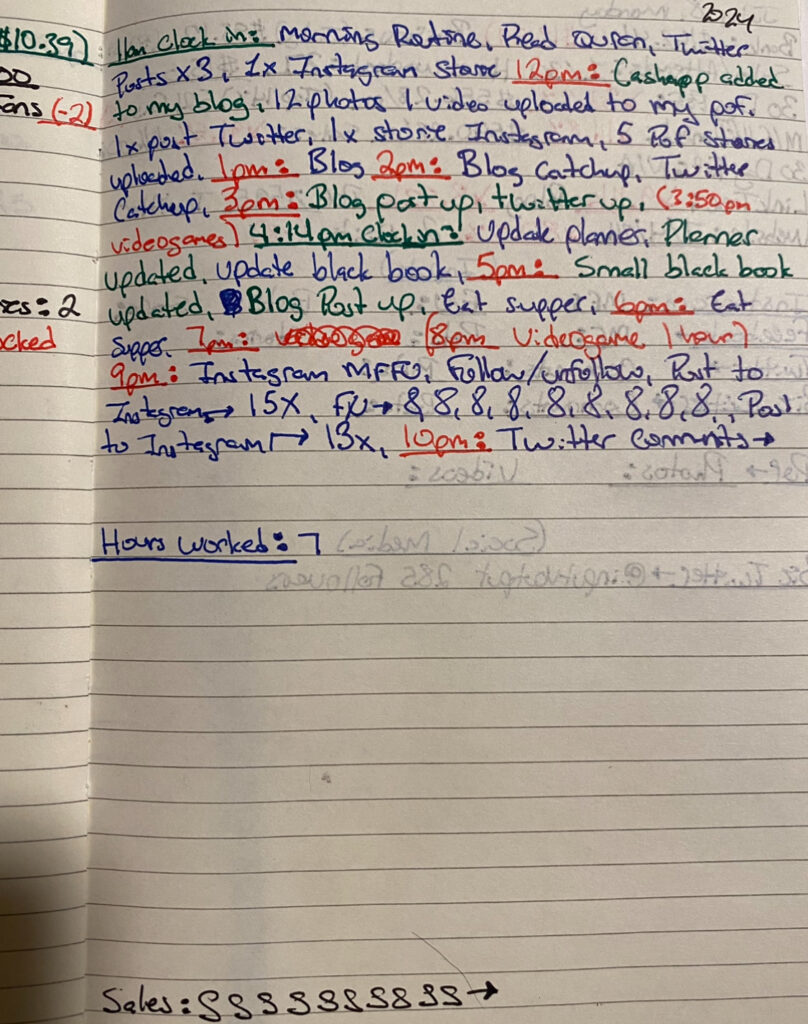 2024
$10.39) 11am Clock in: Morning Routine, Read Quran, Twitter
Posts x3, 1x Instagram Storie 12pm: Cashapp added
Fans (-2) to my blog, 12 photos 1 video uploaded to my pof.
1x post Twitter, 1x storie Instagram, 5 Pof stories
uploaded. 1pm: Blog 2pm: Blog Catchup, Twitter
Catchup, 3pm: Blog post up, twitter up, (3:50pm
videogames) 4:14pm Clock in: Update planner, Planner
updated, update black book, 5pm: Small black book
: 2 updated, Blog Post up, Eat supper, 6pm: Eat
cked Supper. 7pm: (8pm Videogame 1 hour)
9pm: Instagram MFFU, Follow/unfollow, Post to
Instagram → 15x, FU → 8, 8, 8, 8, 8, 8, 8, 8, 8, Post
to Instagram → 13x, 10pm: Twitter Comments →
Hours worked: 7
Sales: